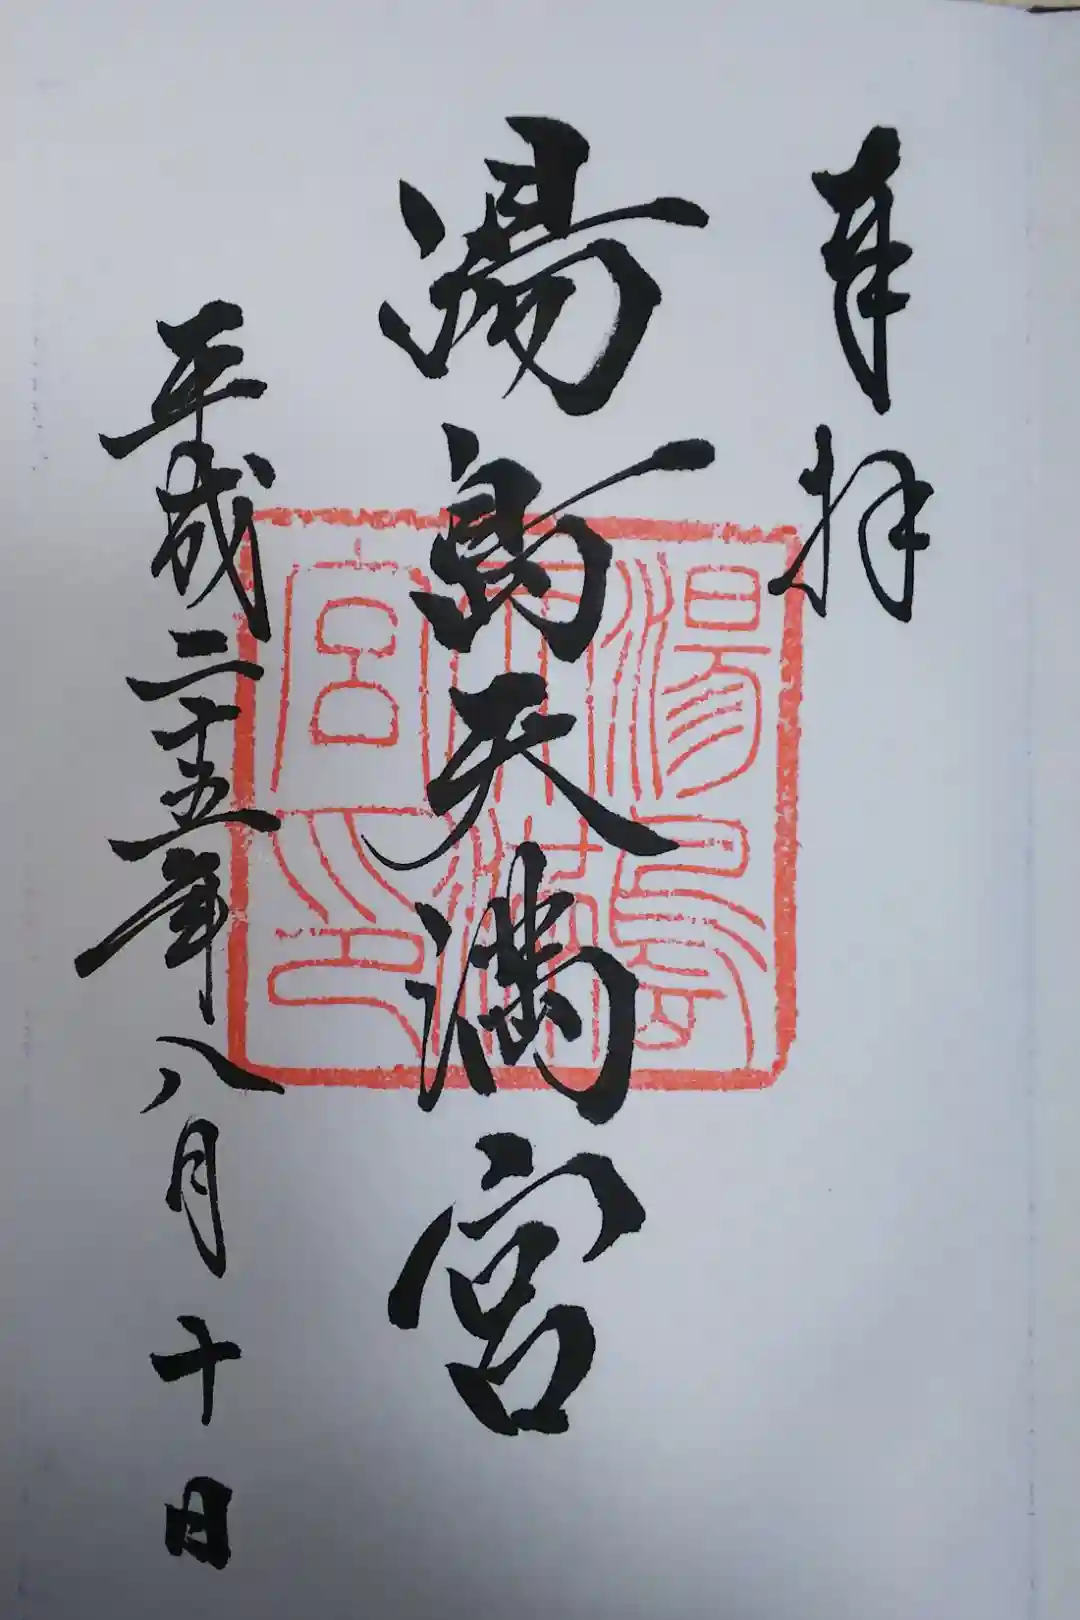 奉拝
湯島天満宮
湯島天満宮印
平成二十五年八月十日